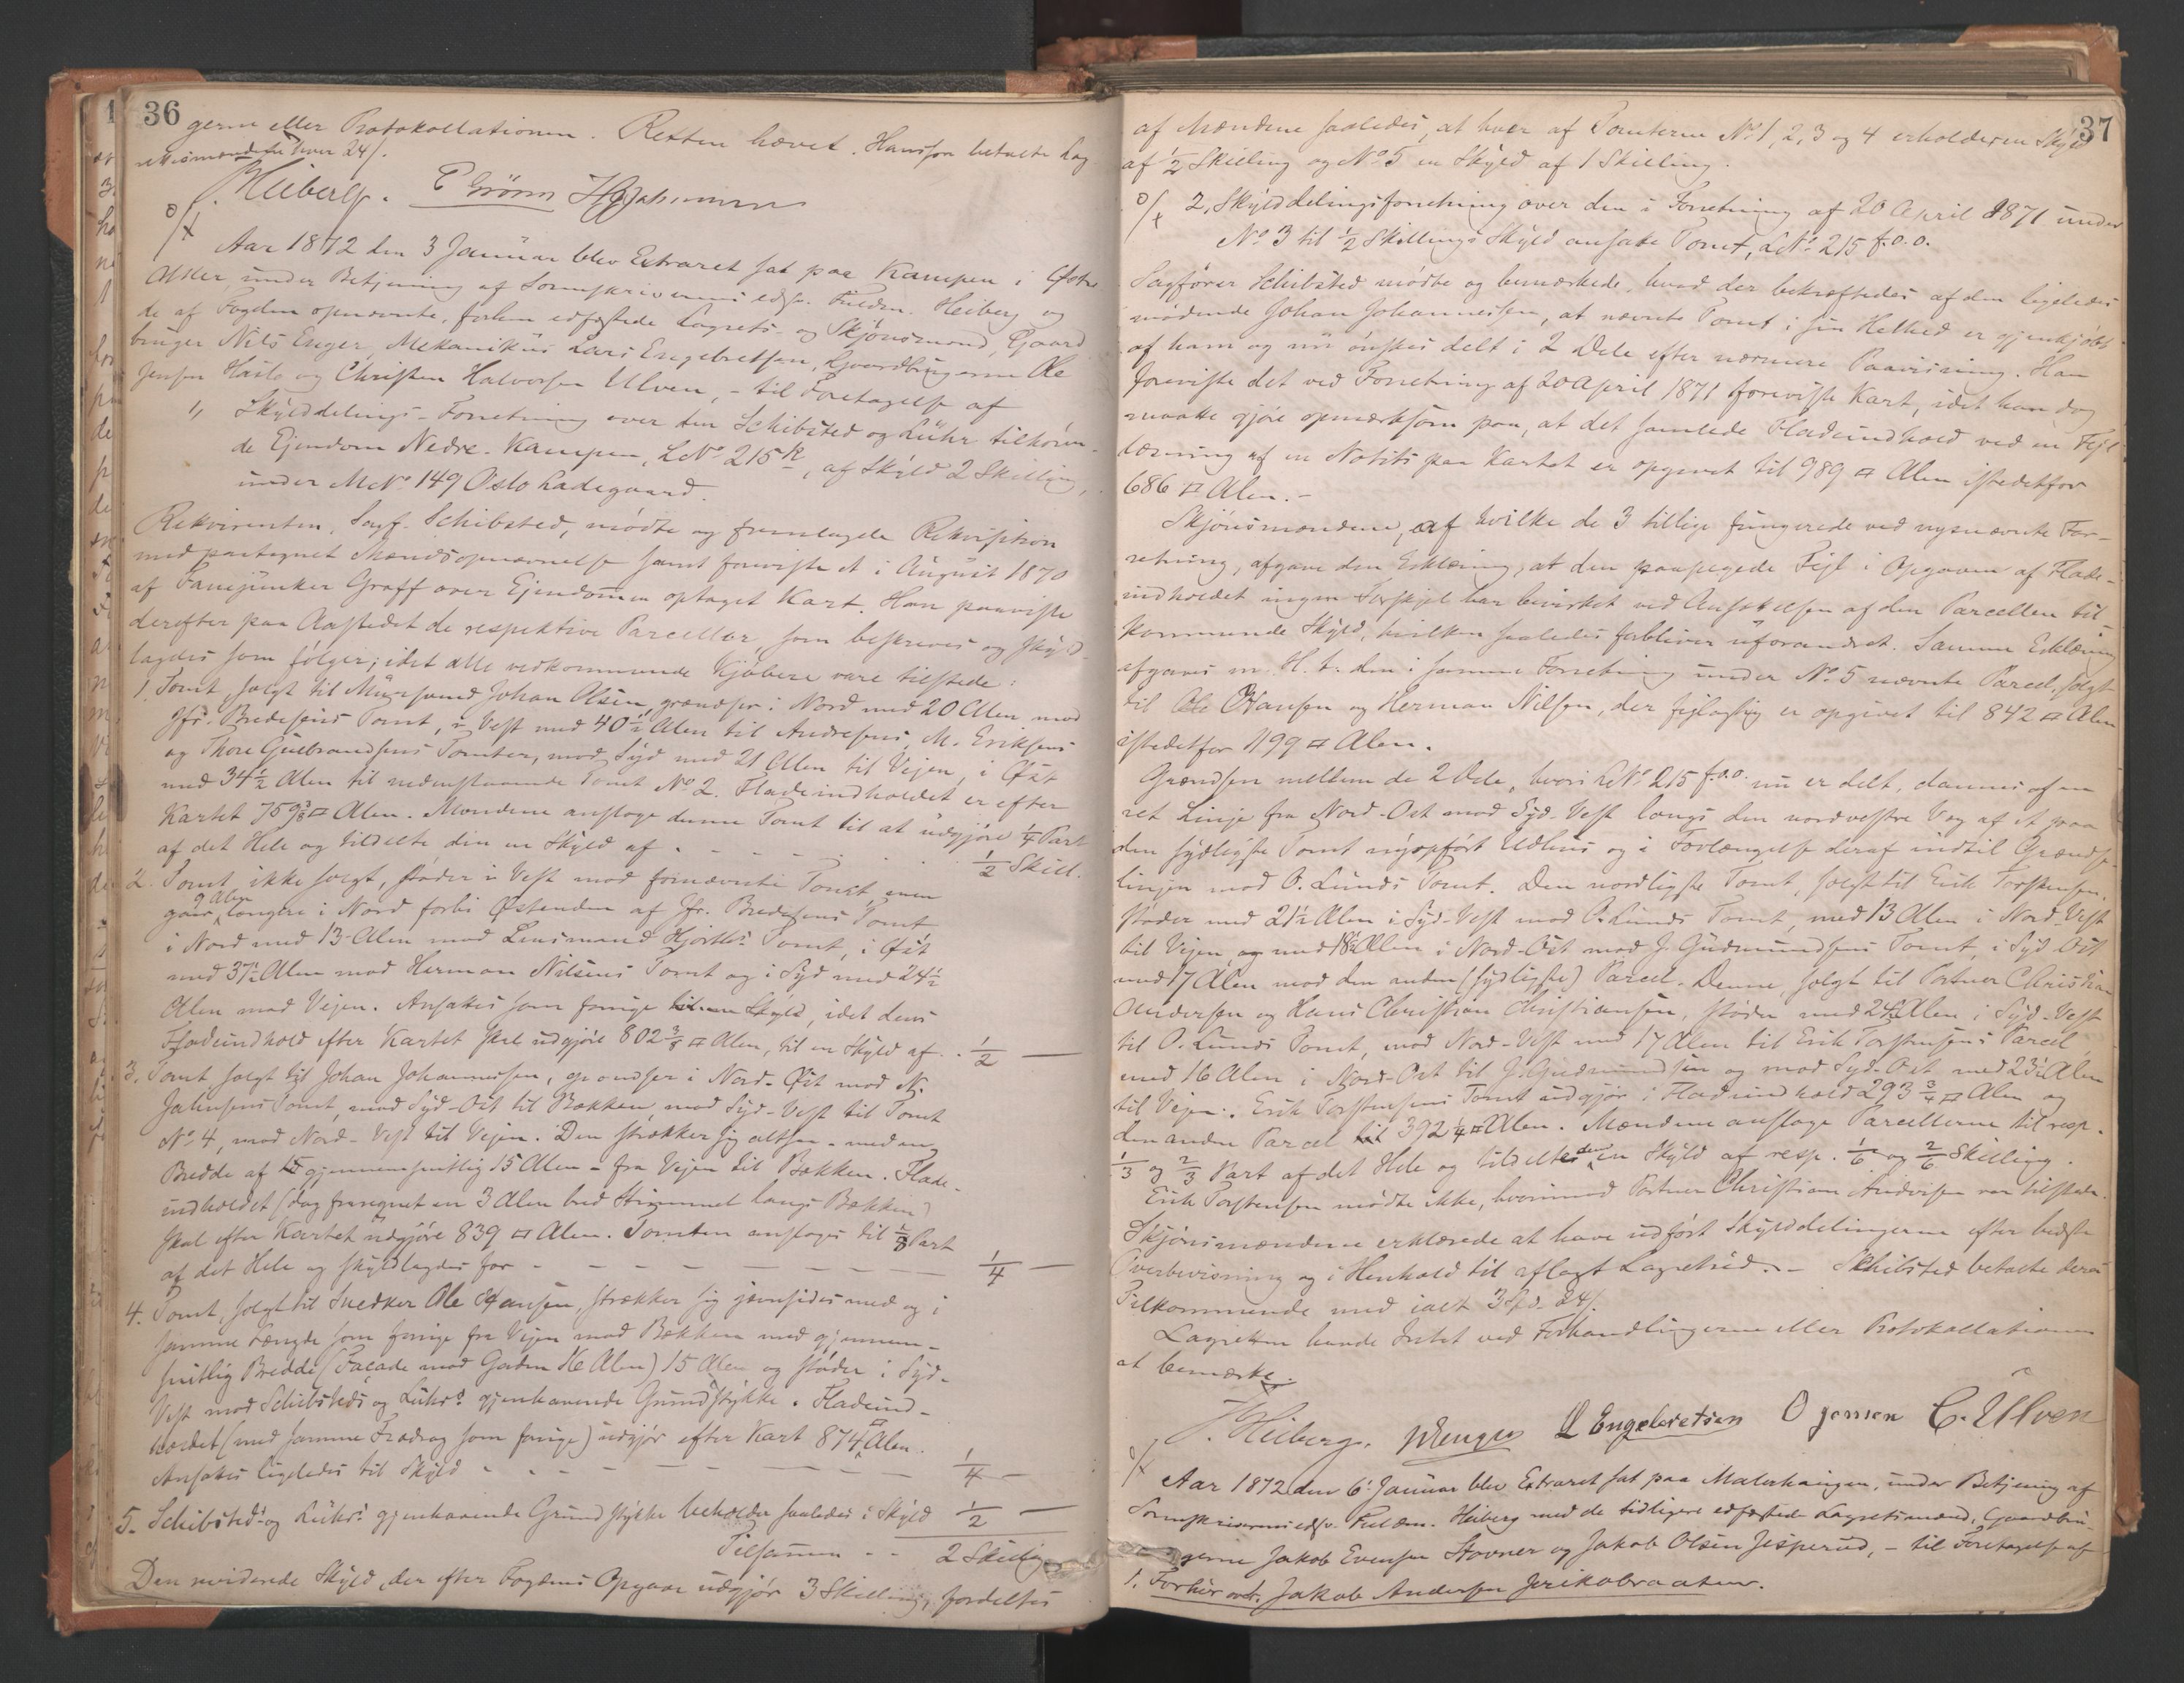 36
gerne eller Protokollationen. Retten hævet. Hansson betalte Lag-
rettismændene hver 24 ß.
Heiberg. P Grönn H Johannesen
Aar 1872 den 3 Januar blev Extraret sat paa Kampen i Østre
Aker, under Betjening af Sorenskriverens edsv. Fuldm. Heiberg og
de af Fogden opnævnte, forhen edfæstede Lagrets- og Skjönsmænd, Gaard
bruger Nils Enger, Mekanikus Lars Engebretsen, Gaardbrugerne Ole
Jensen Hasle og Christen Halvorsen Ulven, - til Foretagelse af
1, Skylddelings-Forretning over den Schibsted og Lühr tilhören-
de Ejendom Nedre-Kampen, LNo 215k, af Skyld 2 Skilling,
under MNo 149 Oslo Ladegaard.
Rekvirenten, Sagf. Schibsted, mödte og fremlagde Rekvisition
med paategnet Mændsopnævnelse samt foreviste et i August 1870
af Fanejunker Graff over Ejendommen optaget Kart. Han paaviste
derefter paa Aastedet de respektive Parceller som beskreves og skyld-
lagdes som fölger; idet alle vedkommende Kjöbere vare tilstede:
1. Tomt, solgt til Muursvend Johan Olsen, grændser i Nord med 20 Alen mod
Jfr. Bredesens Tomt, i Vest med 40½ Alen til Andresens, M. Eriksens
og Thore Gulbrandsens Tomter, mod Syd med 21 Alen til Vejen, i Øst
med 34½ Alen til nedenstaaende Tomt No 2. Fladeindholdet er efter
Kartet 759⅜ □ Alen. Mændene ansloge denne Tomt til at udgjöre ¼ Part
af det Hele og tildelte den en Skyld af . - - - - ½ Skill.
2. Tomt, ikke solgt, stöder i Vest mod fornævnte Tomt, men
gaar 9 Alen længere i Nord forbi Østenden af Jfr. Bredesens Tomt,
i Nord med 13 Alen mod Lensmand Hjorths Tomt, i Øst
med 37½ Alen mod Herman Nilsens Tomt og i Syd med 24½
Alen mod Vejen. Ansattes som forrige til en Skyld, idet dens
Fladeindhold efter Kartet skal udgjöre 802⅜ □ Alen, til en Skyld af . . ½ —
3. Tomt, solgt til Johan Johannessen, grændser i Nord-Øst mod N.
Jahnsens Tomt, mod Syd-Ost til Bækken, mod Syd-Vest til Tomt
No 4, mod Nord-Vest til Vejen. Den strækker sig altsaa - med en
Bredde af gjennemsnitlig 15 Alen - fra Vejen til Bækken. Flade-
indholdet (dog fraregnet en 3 Alen bred Strimmel langs Bækken)
skal efter Kartet udgjöre 839 □ Alen. Tomten ansloges til ⅛ Part
af det Hele og skyldlagdes for - - - — — — — ¼ —
4. Tomt, solgt til Snedker Ole Hansen, strækker sig jevnsides med og i
samme Længde som forrige fra Vejen mod Bækken med gjennem-
snitlig Bredde (Façade mod Gaden 16 Alen) 15 Alen og stöder i Syd-
Vest mod Schibsteds og Lührs gjenhavende Grundstykke. Fladeind-
holdet (med samme Fradrag som forrige) udgjör efter Kart 874 □ Alen.
Ansattes ligeledes til Skyld - - - - — — — ¼ —
5. Schibsteds og Lührs gjenhavende Grundstykke beholder saaledes i Skyld ½ —
Tilsammen - - 2 Skilling
Den reviderede Skyld, der efter Fogdens Opgave udgjör 3 Skilling, fordeltes
37
af Mændene saaledes, at hver af Tomterne No 1, 2, 3 og 4 erholder en Skyld
af ½ Skilling og No 5 en Skyld af 1 Skilling.
2, Skylddelingsforretning over den i Forretning af 20 April 1871 under
No 3 til ½ Skillings Skyld ansatte Tomt, LNo 215 f.o.o.
Sagförer Schibsted mödte og bemærkede, hvad der bekræftedes af den ligeledes
mödende Johan Johannessen, at nævnte Tomt i sin Helhed er gjenkjöbt
af ham og nu önskes delt i 2 Dele efter nærmere Paavisning. Han
foreviste det ved Forretning af 20 April 1871 foreviste Kart, idet han dog
maatte gjöre opmærksom paa, at det samlede Fladeindhold ved en Fejl
læsning af en Notits paa Kartet er opgivet til 989 □ Alen istedetfor
686 □ Alen. -
Skjönsmændene, af hvilke de 3 tillige fungerede ved nysnævnte For-
retning, afgave den Erklæring, at den paapegede Fejl i Opgaven af Flade-
indholdet ingen Forskjel har bevirket ved Ansættelsen af den Parcellen til-
kommende Skyld, hvilken saaledes forbliver uforandret. Samme Erklæring
afgaves m. H. t. den i samme Forretning under No 5 nævnte Parcel, solgt
til Ole Hansen og Herman Nilsen, der fejlagtig er opgivet til 842 □ Alen
istedetfor 1199 □ Alen.
Grændsen mellem de 2 Dele, hvori LNo 215 f.o.o. nu er delt, dannes af en
ret Linje fra Nord-Ost mod Syd-Vest langs den nordvestre Væg af et paa
den sydligste Tomt nyopfört Udhus og i Forlængelse deraf indtil Grændse-
linjen mod O. Lunds Tomt. Den nordligste Tomt, solgt til Erik Torstensen,
stöder med 21½ Alen i Syd-Vest mod O. Lunds Tomt, med 13 Alen i Nord-Vest
til Vejen og med 18½ Alen i Nord-Ost mod J. Gudmundsens Tomt, i Syd-Ost
med 17 Alen mod den anden (sydligste) Parcel. Denne, solgt til Portner Christian
Andersen og Hans Christian Christiansen, stöder med 24½ Alen i Syd-Vest
til O. Lunds Tomt, mod Nord-Vest med 17 Alen til Erik Torstensens Parcel,
med 16 Alen i Nord-Ost til J. Gudmundsen og mod Syd-Ost med 23½ Alen
til Vejen. Erik Torstensens Tomt udgjör i Fladeindhold 293¾ □ Alen og
den anden Parcel 392¼ □ Alen. Mændene ansloge Parcellerne til resp.
⅓ og ⅔ Part af det Hele og tildeltes dem en Skyld af resp. 1/6 og 2/6 Skilling.
Erik Torstensen mödte ikke, hvorimod Portner Christian Andersen var tilstede.
Skjönsmændene erklærede at have udfört Skylddelingerne efter bedste
Overbevisning og i Henhold til aflagt Lagretsed. - Schibsted betalte deres
Tilkommende med ialt 3 Spd. 24 ß.
Lagretten havde Intet ved Forhandlingerne eller Protokollationen
at bemærke.
Heiberg. NEnger L Engebretsen O Jensen C. Ulven
Aar 1872 den 6. Januar blev Extraret sat paa Malerhaugen, under Betjening af
Sorenskriverens edsv. Fuldm. Heiberg med de tidligere edfæstede Lagretsmænd, Gaardbru-
gerne Jakob Evensen Stovner og Jakob Olsen Jesperud, - til Foretagelse af
1. Forhör ovr. Jakob Andersen Jerikobraaten.